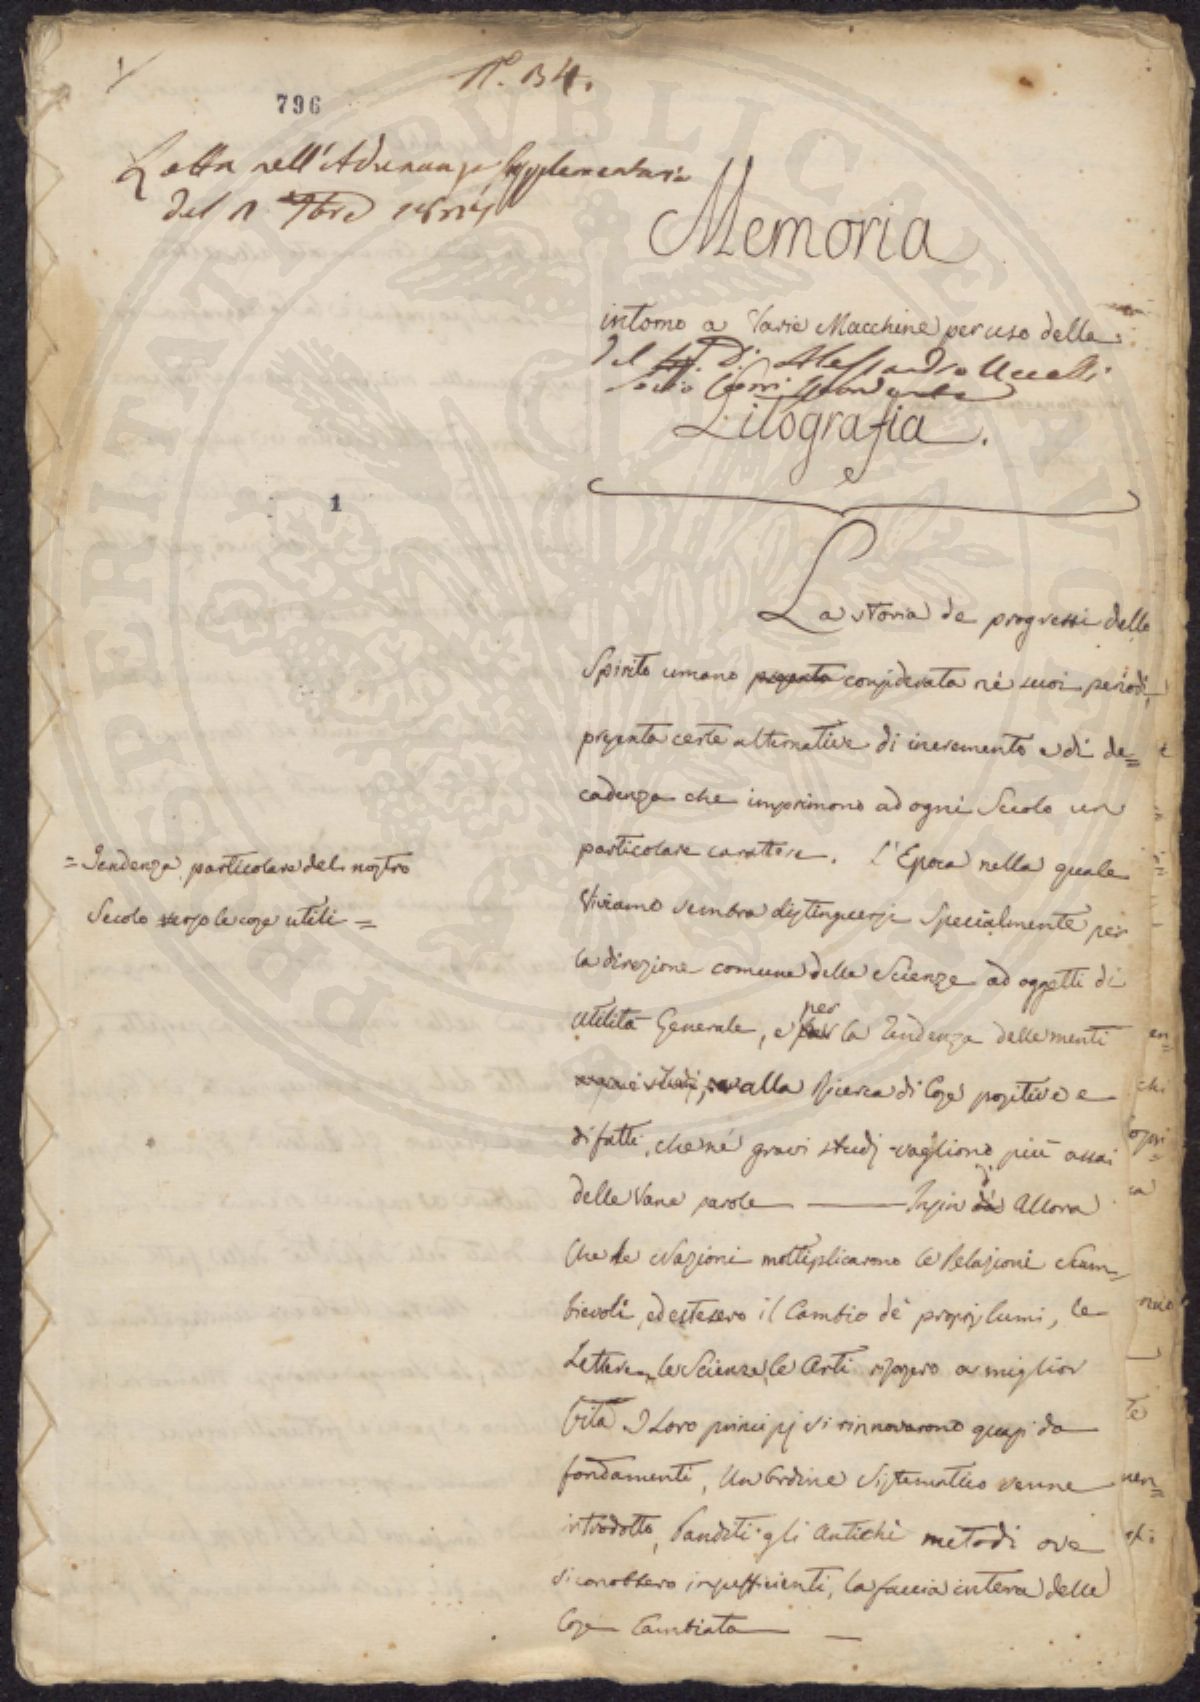 N.° 134.
796
Letta nell'Adunanza Supplementaria
del 7bre
Memoria
intorno a Varie Macchine per uso della
Del Sig. D. Alessandro Uccelli
Socio Corrispondente
Litografia.
1
La storia de progressi dello
Spirito umano presenta considerata né suoi periodi,
presenta certe alternative di incremento e di de=
cadenza che imprimono ad ogni Secolo un
particolare carattere. L'Epoca nella quale
Viviamo sembra distinguersi Specialmente per
la direzione comune delle Scienze ad oggetti di
utilità Generale, e per la Tendenza delle menti
alla Ricerca di Cose positive e
di fatti, che né gravi studj vagliono più assai
delle Vane parole ——— Insin d' Allora
Che le Nazioni moltiplicarono le Relazioni Scam=
bievoli, ed estesero il Cambio de' proprj lumi, le
Lettere, le Scienze, le Arti risorsero a miglior
Vita. I Loro principj si rinnovarono quasi da
fondamenti, Un Ordine Sistematico venne
introdotto, Banditi gli Antichi metodi ove
si conobbero insufficienti, la faccia intera delle
Cose Cambiata —
= Tendenza particolare del nostro
Secolo verso le cose utili =
PUBLICAE PROSPERITATI AUGENDAE